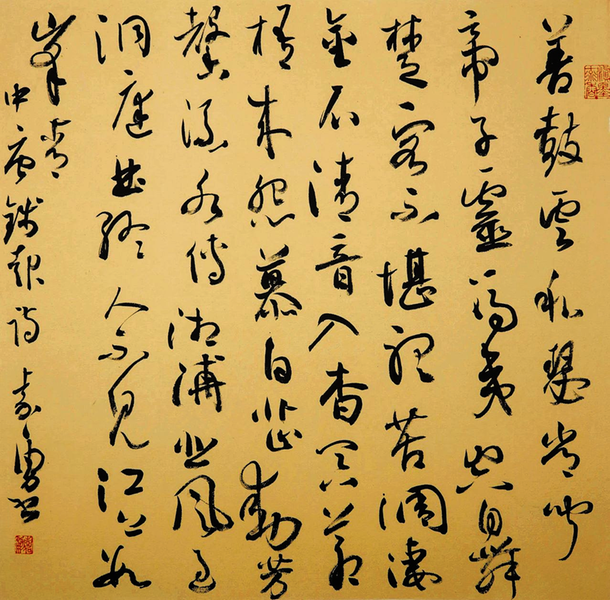 善鼓雲和瑟常聞
帝子靈馮夷空自舞
楚客不堪聽苦調淒
金石清音入杳冥蒼
梧來怨慕白芷動芳
馨流水傳湘浦悲風過
洞庭曲終人不見江上數
峰青
中唐錢起詩